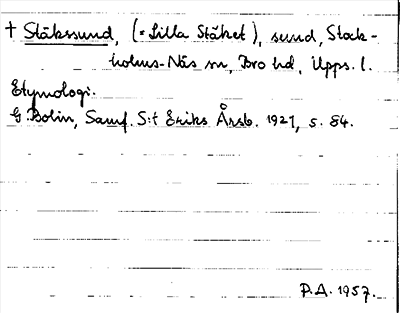 † Stäkssund, (= Lilla Stäket), sund, Stock-
holms-Näs sn, Bro hd, Upps. l.
Etymologi.
G. Bolin, Samf. S:t Eriks Årsb. 1921, s. 84.
P.A. 1957.